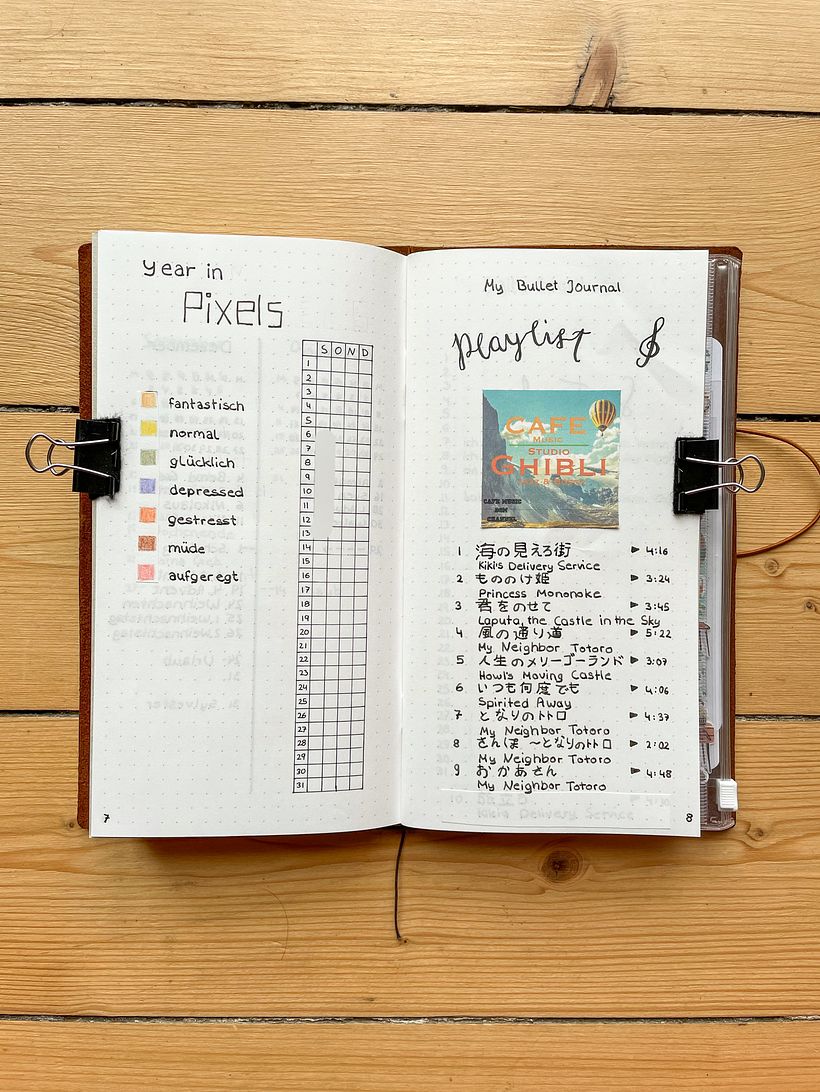 year in
Pixels
S O N D
fantastisch
normal
glücklich
depressed
gestresst
müde
aufgeregt
1
2
3
4
5
6
7
8
9
10
11
12
13
14
15
16
17
18
19
20
21
22
23
24
25
26
27
28
29
30
31
7
My Bullet Journal
playlist
CAFE
MUSIC
STUDIO
GHIBLI
CAFE MUSIC
BGM
CHANNEL
1 海の見える街 ▶ 4:16
Kiki's Delivery Service
2 もののけ姫 ▶ 3:24
Princess Mononoke
3 君をのせて ▶ 3:45
Laputa, the Castle in the Sky
4 風の通り道 ▶ 5:22
My Neighbor Totoro
5 人生のメリーゴーランド ▶ 3:07
Howl's Moving Castle
6 いつも何度でも ▶ 4:06
Spirited Away
7 となりのトトロ ▶ 4:37
My Neighbor Totoro
8 さんぽ 〜となりのトトロ ▶ 2:02
My Neighbor Totoro
9 おかあさん ▶ 4:48
My Neighbor Totoro
8